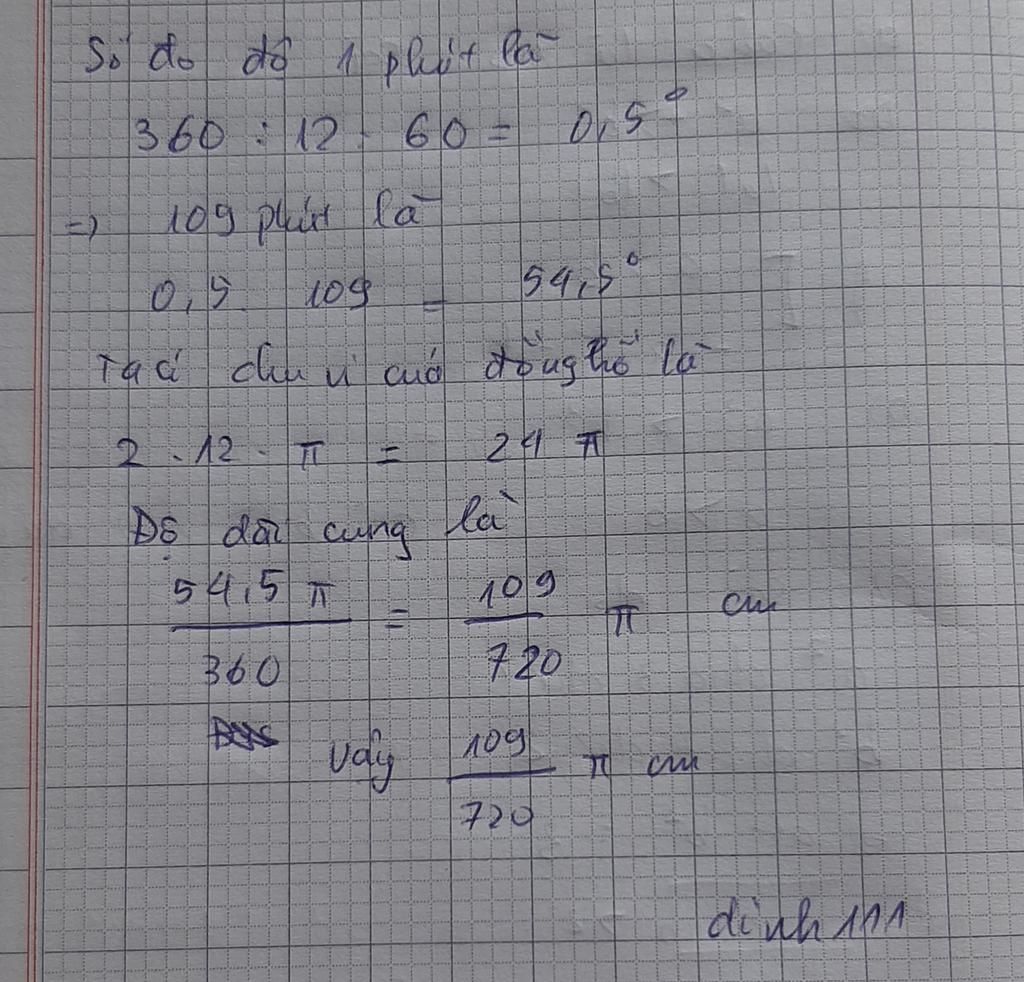 Số đo độ 1 phút là
360 : 12 . 60 = 0,5°
=) 109 phút là
0,5 . 109 = 54,5°
Ta có chu vi cuả đồng hồ là
2 . 12 . π = 24 π
Độ dài cung là
54,5 π / 360 = 109 / 720 π cm
Vậy 109 / 720 π cm
dinh 111